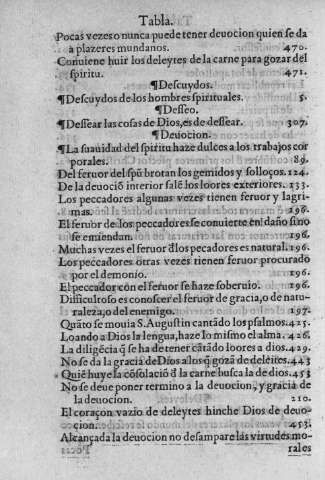 Tabla.
Pocas vezes o nunca puede tener deuocion quien se da
a plazeres mundanos. 470.
Conuiene huir los deleytes de la carne para gozar del
spiritu. 471.
¶Descuydos.
¶Descuydos de los hombres spirituales. 5.
¶Desseo.
¶Dessear las cosas de Dios, es de dessear. 307.
¶Deuocion.
¶La suauidad del spiritu haze dulces a los trabajos cor
porales. 89.
Del feruor del spũ brotan los gemidos y solloços. 124.
De la deuociõ interior salẽ los loores exteriores. 133.
Los peccadores algunas vezes tienen feruor y lagri-
mas. 196.
El feruor de los peccadores se conuierte en daño sino
se emiendan. 196.
Muchas vezes el feruor đlos pecadores es natural. 196.
Los peccadores otras vezes tienen feruor procurado
por el demonio. 196.
El peccador con el feruor se haze soberuio. 196.
Difficultoso es conoscer el feruor de gracia, o de natu-
raleza, o del enemigo. 197.
Quãto se mouia S. Augustin cantãdo los psalmos. 425.
Loando a Dios la lengua, haze lo mismo el alma. 426.
La diligẽcia q̃ se ha de tener cãtãdo loores a dios. 429.
No se da la gracia de Dios a los q̃ gozã de deleites. 443
Quiẽ huye la cõsolaciõ đ la carne busca la de dios. 453
No se deue poner termino a la deuocion, y gracia de
la deuocion. 210.
El coraçon vazio de deleytes hinche Dios de deuo-
cion. 453.
Alcançada la deuocion no desampare las virtudes mo-
rales